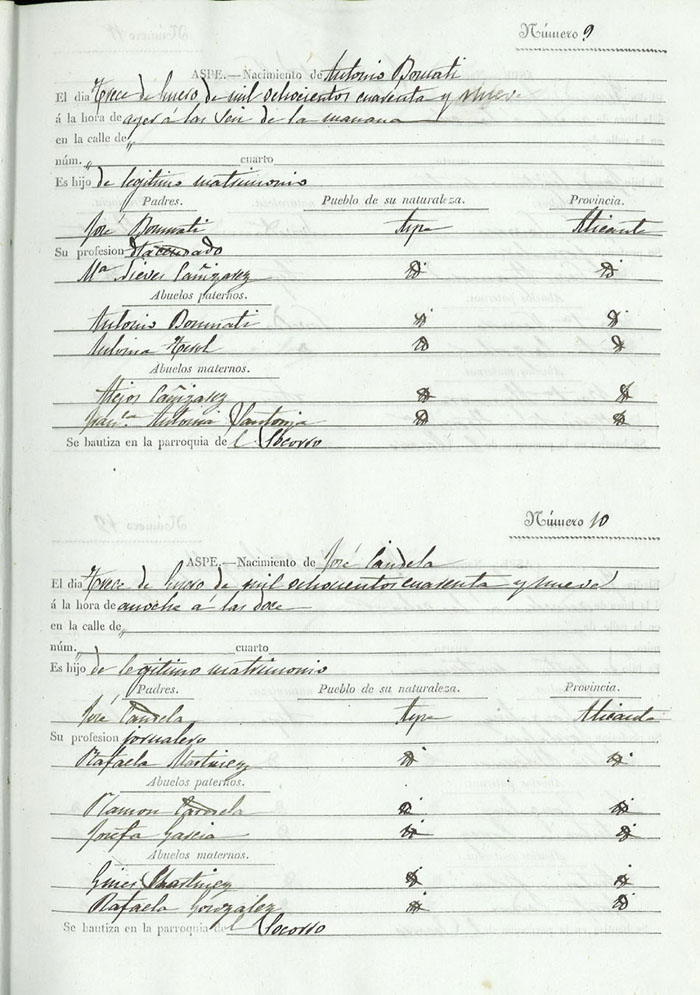 Número 9
ASPE.—Nacimiento de Antonio Bonmati
El dia Trece de Enero de mil ochocientos cuarenta y nueve
á la hora de ayer a las Seis de la mañana
en la calle de „
núm. „ cuarto
Es hijo de legitimo matrimonio
Padres. Pueblo de su naturaleza. Provincia.
José Bonmati Aspe Alicante
Su profesion Hacendado
Mª Nieves Cañizarez
Abuelos paternos.
Antonio Bonmati
Antonia
Abuelos maternos.
Cañizarez
Franca. Antonia Santonja
Se bautiza en la parroquia de l Socorro
Número 10
ASPE.—Nacimiento de José Candela
El dia Trece de Enero de mil ochocientos cuarenta y nueve
á la hora de anoche á las doce
en la calle de „
núm. „ cuarto
Es hijo de legitimo matrimonio
Padres. Pueblo de su naturaleza. Provincia.
José Candela Aspe Alicante
Su profesion jornalero
Rafaela Martinez
Abuelos paternos.
Ramon Candela
Josefa Garcia
Abuelos maternos.
Gines Martinez
Rafaela González
Se bautiza en la parroquia de l Socorro